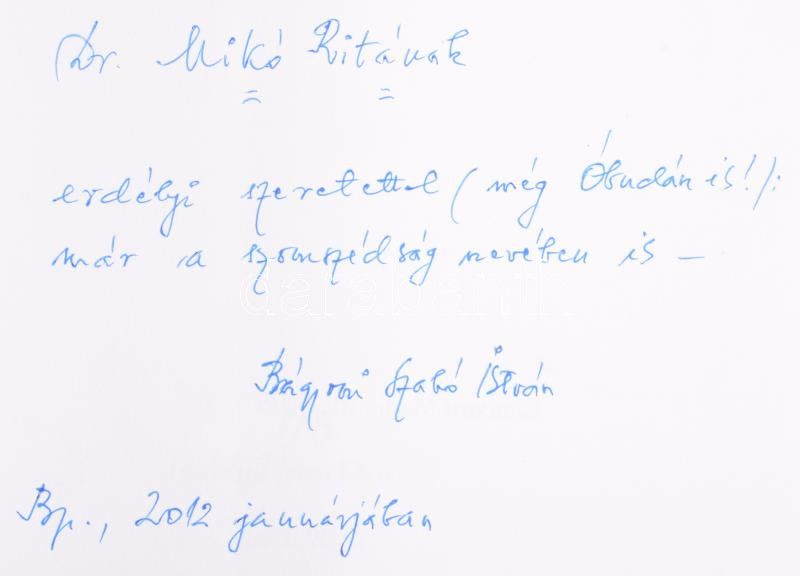 Dr. Mikó Ritának
erdélyi szeretettel (még Óbudán is!):
már a szomszédság nevében is –
Bágyoni Szabó István
Bp., 2012 januárjában